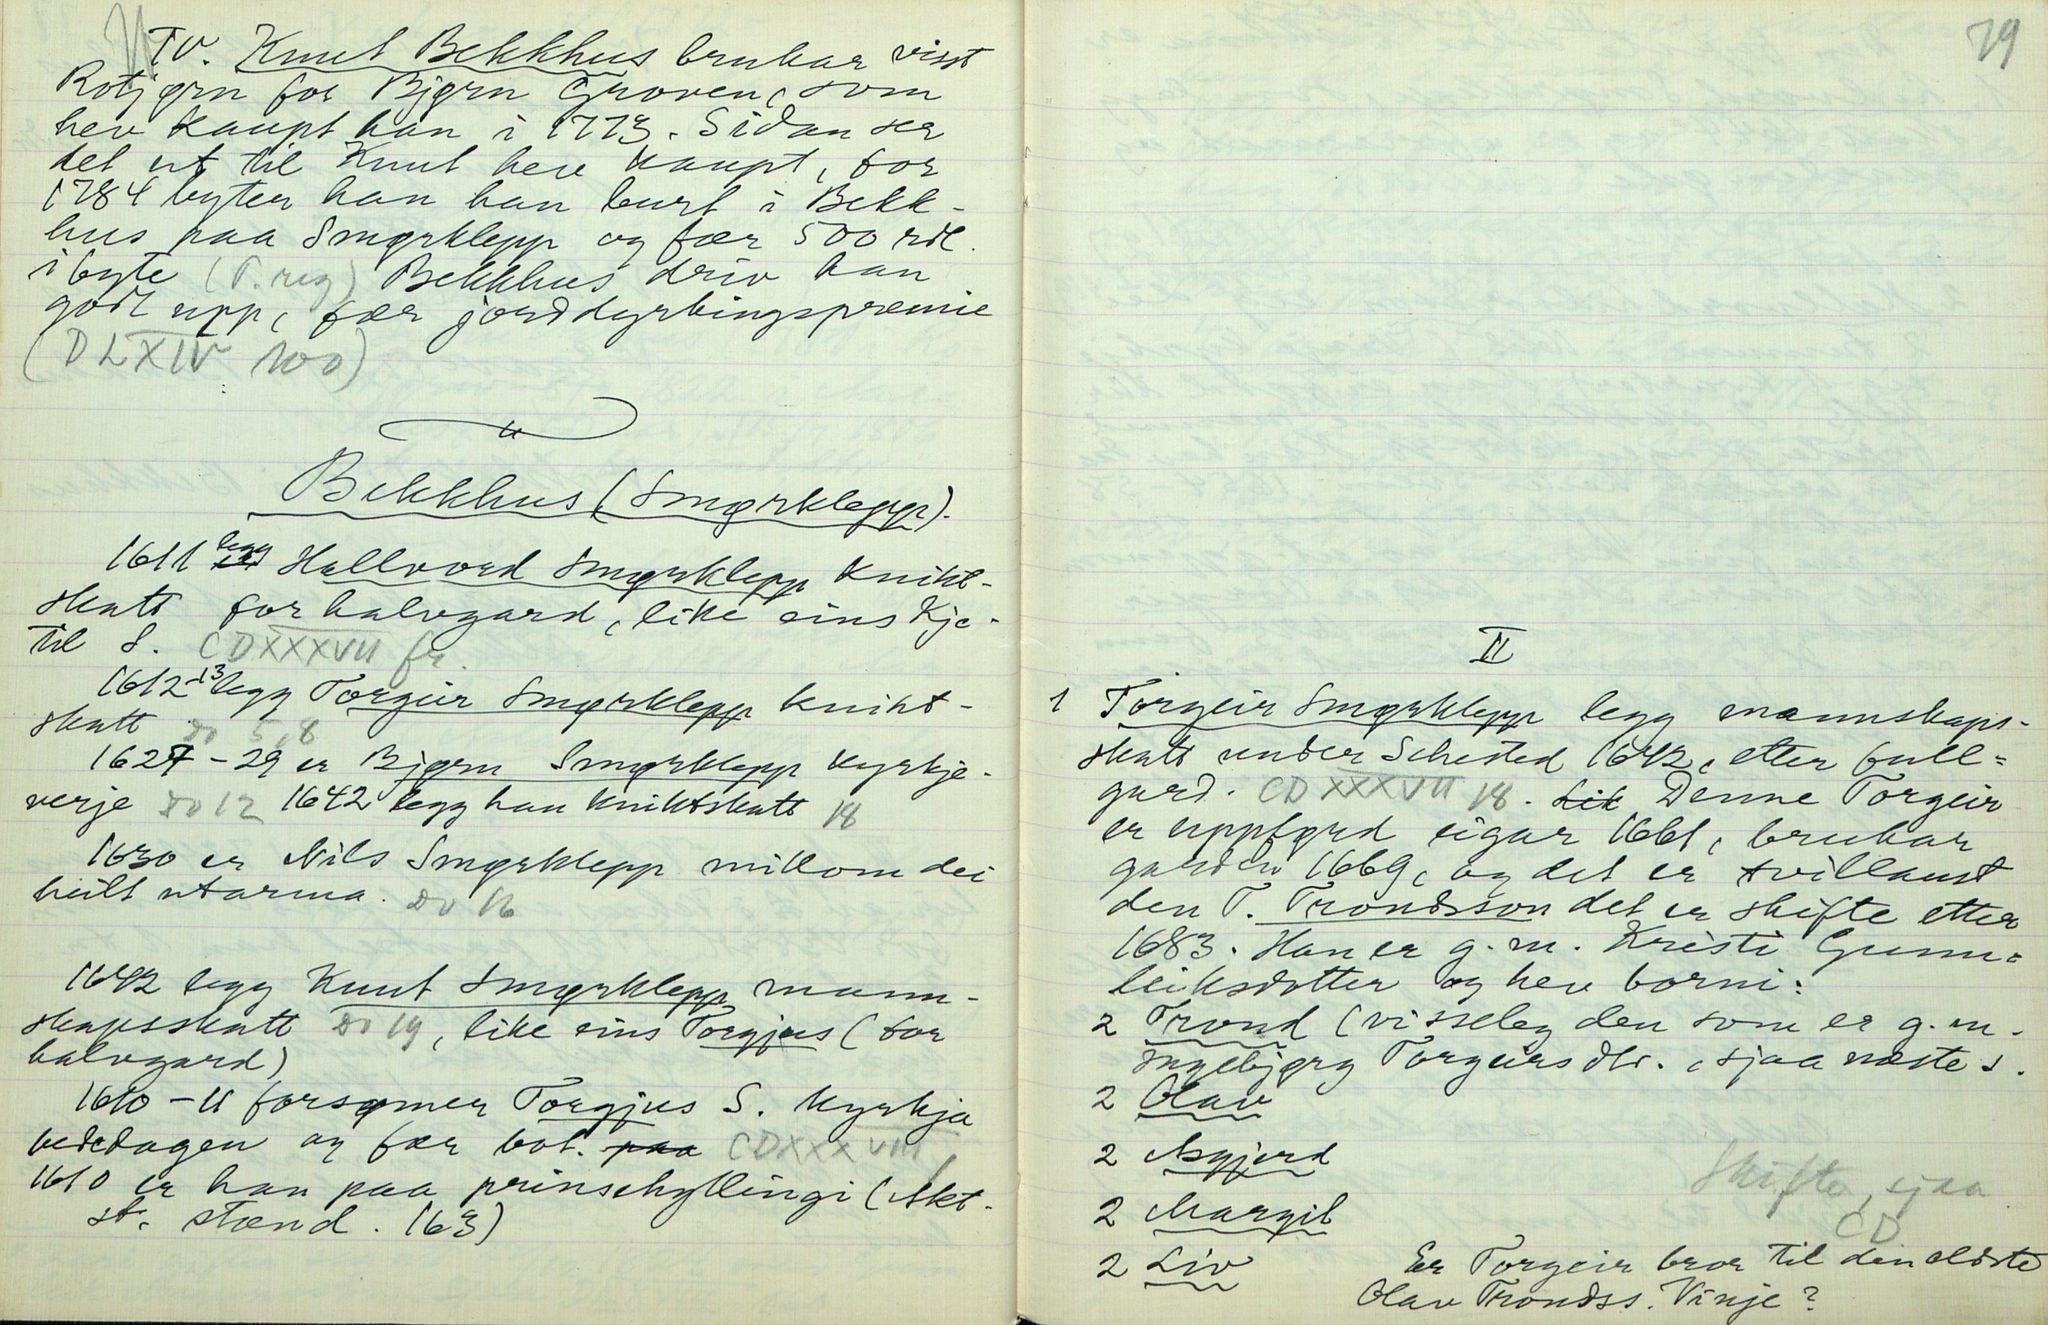 IV. Knut Bekkhus brukar visst
Rotjørn for Bjørn Groven, som
hev kaupt han i 1773. Sidan ser
det ut til Knut hev kaupt, for
1784 byter han han burt i Bekk-
hus paa Smørklepp og fær 500 rdl.
i byte (P. reg) Bekkhus driv han
godt upp, fær jorddyrkingspremie
(DLXIV 100)
Bekkhus (Smørklepp).
1611 legg Hallvord Smørklepp knikt-
skatt for halvgard, like eins Kje-
til S. CDXXXVII fr.
1612-13 legg Torgeir Smørklepp knikt-
skatt do 5,8
1627-29 er Bjørn Smørklepp kyrkje-
verje do 12 1642 legg han kniktskatt 18
1630 er Nils Smørklepp millom dei
heilt utarma. do 16
1642 legg Knut Smørklepp mann-
skapsskatt do 19, like eins Torgjus (for
halvgard)
1610-11 forsømer Torgjus S. kyrkja
bededagen og fær bot. paa CDXXXVIII
1610 er han paa prinsehyllingi (Akt-
st. stænd. 163)
79
II
1 Torgeir Smørklepp legg mannskaps-
skatt under Sehested 1642, etter full-
gard. CDXXXVII 18. Lik Denne Torgeir
er uppførd eigar 1661, brukar
garden 1669, og det er tvillaust
den T. Trondsson det er skifte etter
1683. Han er g. m. Kristi Gunn-
leiksdotter og hev borni:
2 Trond (visseleg den som er g. m.
Ingebjørg Torgeirsdtr., sjaa næste s.
2 Olav
2 Asgjerd
2 Margit
2 Liv
Skifte, sjaa
CD
Er Torgeir bror til den eldste
Olav Trondss. Vinje?